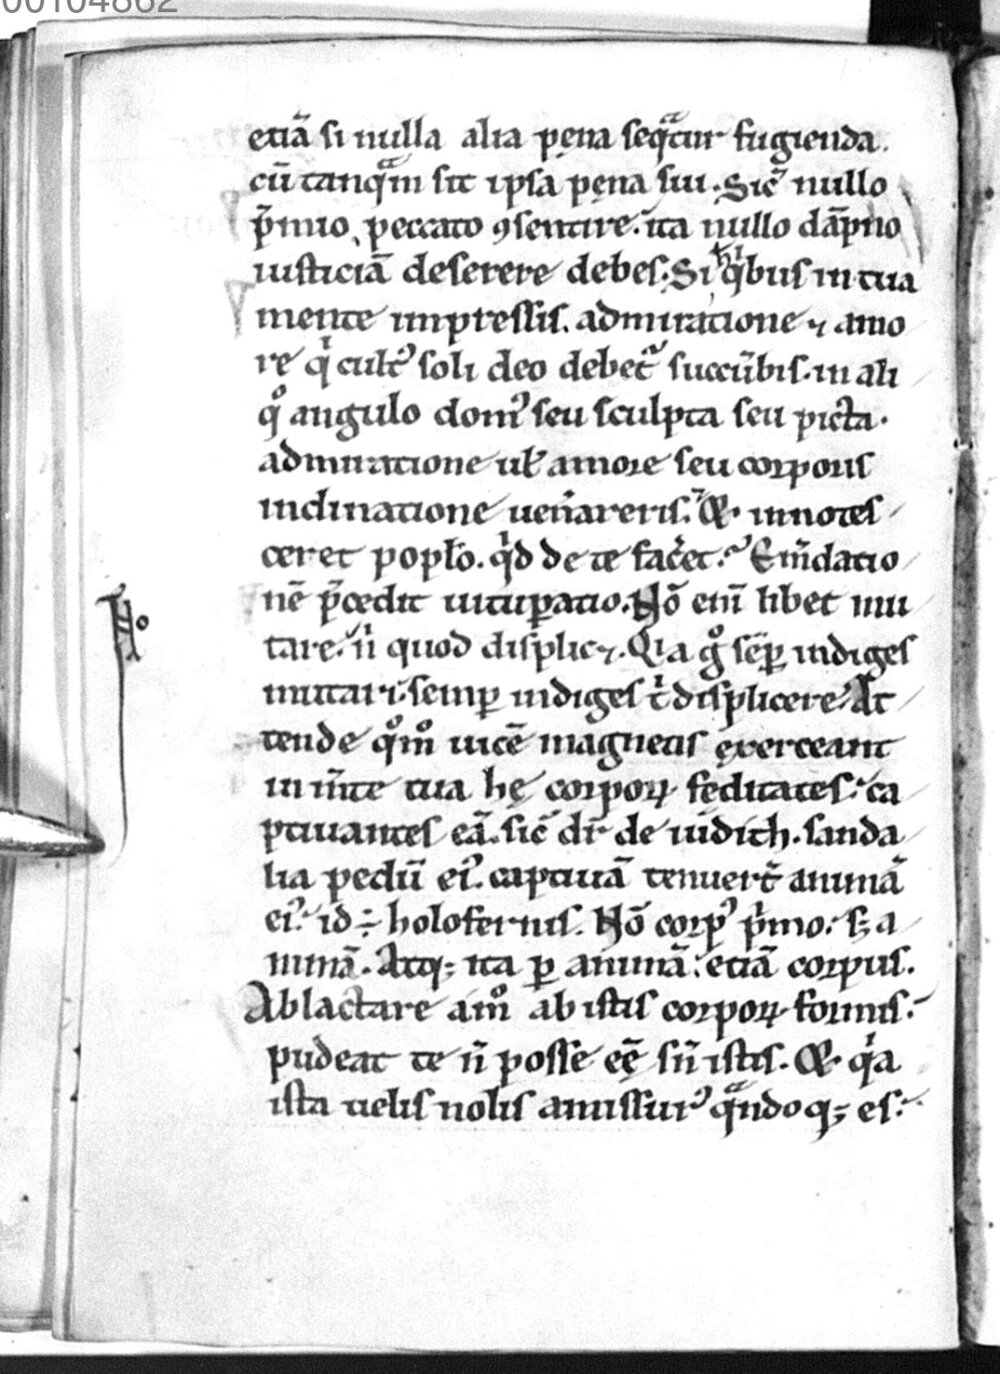 00104862
etiā si nulla alia pęna seqͣtur fugienda.
cū tanqͣm sit ipsa pęna sui. Sic̄ nullo
p̄mio, peccato ꝯsentire. ita nullo dāpno
iusticiā deserere debes. Si hͥ qͥbus in tua
mente impressis. admiratione ⁊ amo
re qͥ cultꝰ soli deo debet᷑ succūbis. in ali
qͦ angulo domꝰ seu sculpta seu picta.
admiratione uł amore seu corporis
inclinatione uen̄areris. Q̄. innotes
ceret popło. qͥd de te fac̄et? Em̄datio
nē p̄cedit uituꝑatio. Nō eni̅ libet mu
tare. n̄ quod displic⁊. Quia gͦ sēꝑ indiges
mutari. semꝑ indiges t̄ displicere. At
tende qͦmͦ uicē magnetis exerceant
in m̄te tua hę corpoꝝ feditates. ca
ptiuantes eā. sic̄ dr̄ de iudith. sanda
lia pedū eiꝰ captiuā tenuer̄t animā
eiꝰ. id ÷ holofernis. Nō corpꝰ p̄mo. sꝫ a
nimā. Atqꝫ ita ꝑ animā. etiā corpus.
Ablactare am̊ ab istis corpoꝝ formis.
pudeat te n̄ posse eę̄ sn̄ istis. Q̄. qͥa
ista uelis nolis amissurꝰ qͣndoqꝫ es.
Nͦ